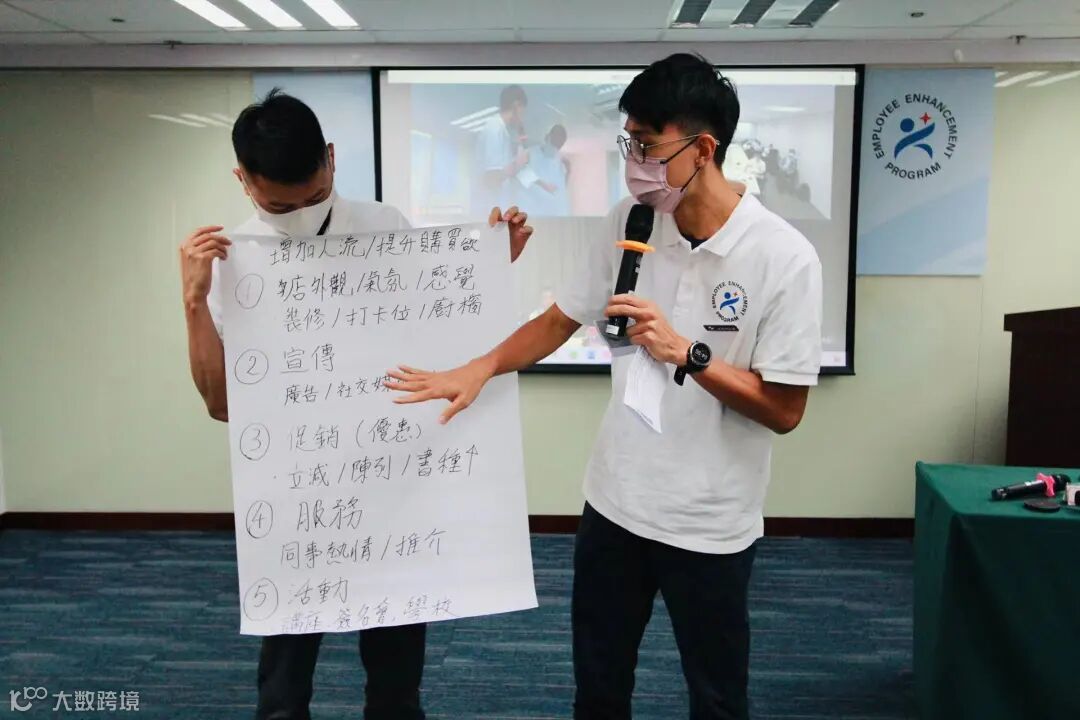 增加人流/提升購買欲
① 書店外觀/氣氛/感覺
裝修/打卡位/廚櫥
② 宣傳
廣告/社交媒
③ 促銷(優惠)
·立減/陳列/書種↑
④ 服務
同事熱情/推介
⑤ 活動
講座、簽名會、學校
EMPLOYEE ENHANCEMENT PROGRAM
EMPLOYEE ENHANCEMENT PROGRAM
大数跨境